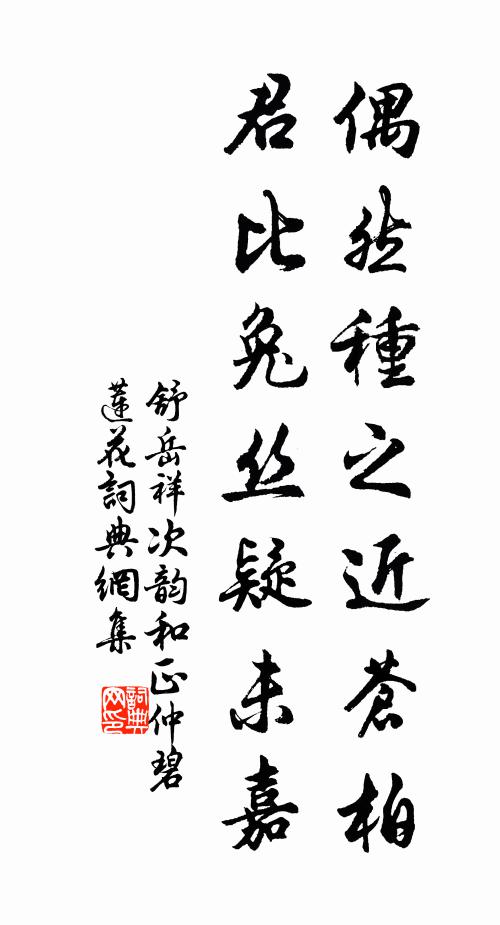 偶然種之近蒼柏
君比兔丝疑未嘉
舒岳祥次韵和正仲碧
蓮花詞典網集
詞典
网印